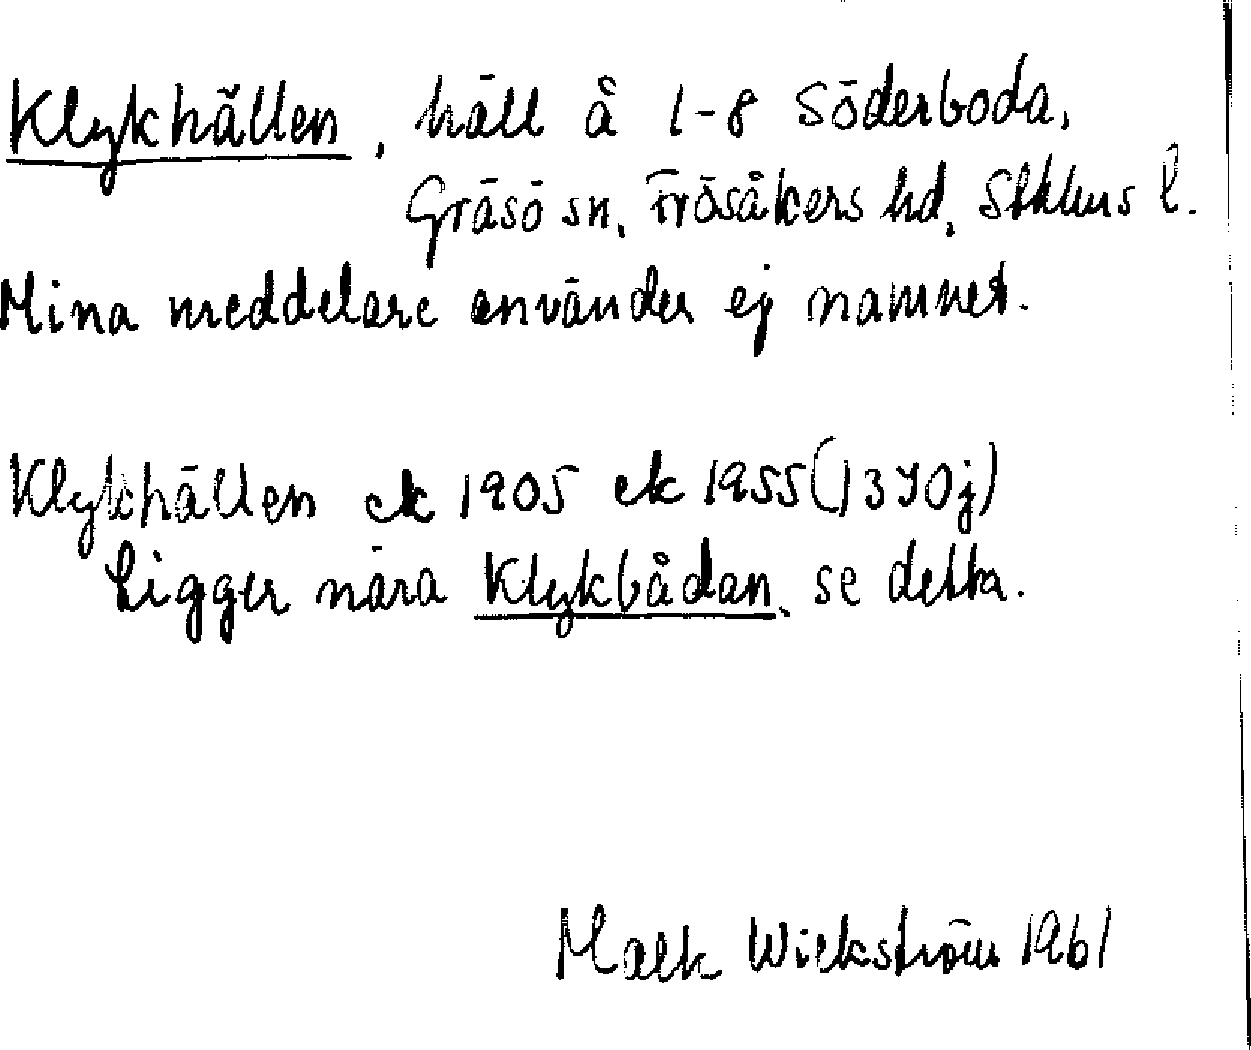 Klykhällen, häll å 1-8 Söderboda,
Gräsö sn, Frösåkers hd, Sthlms l.
Mina meddelare använder ej namnet.
Klykhällen ek 1905 ek 1955 (1370j)
Ligger nära Klykbådan, se detta.
Wickström 1961